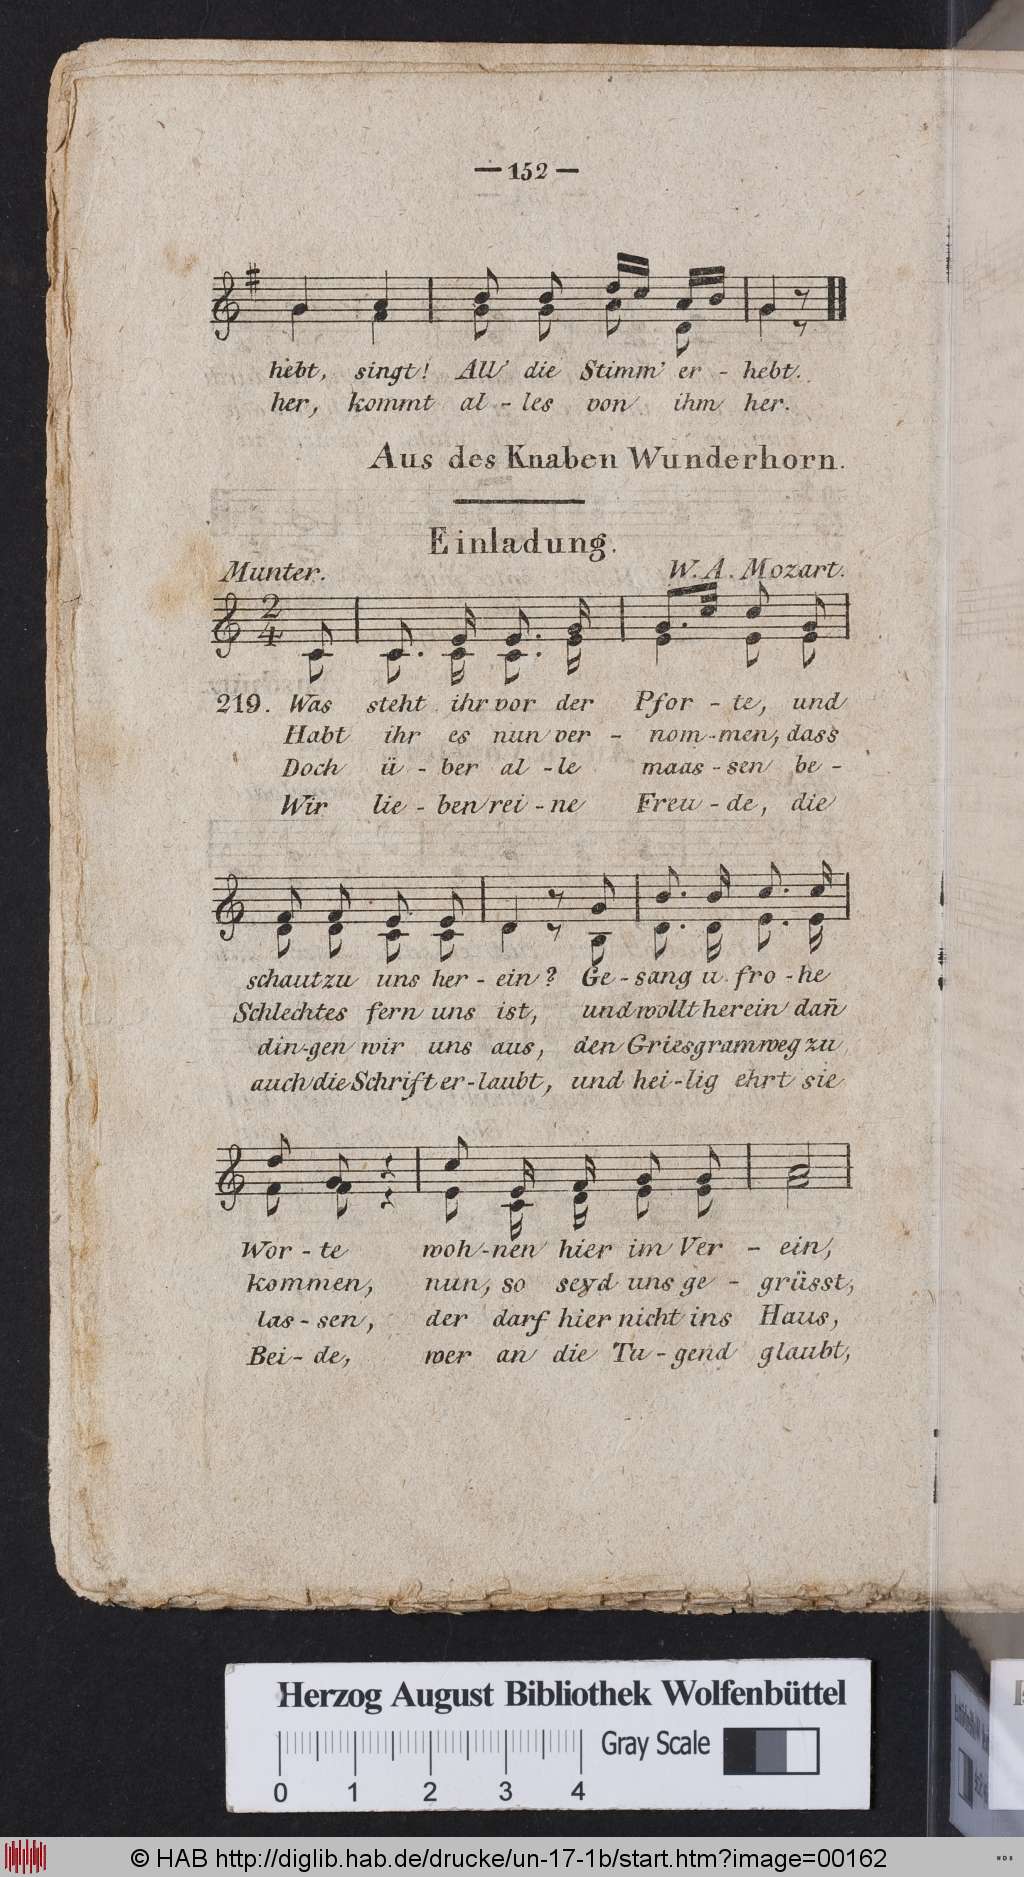 — 152 —
hebt, singt! All' die Stimm' er - hebt.
her, kommt al - les von ihm her.
Aus des Knaben Wunderhorn.
Einladung.
Munter. W. A. Mozart.
2
4
219. Was steht ihr vor der Pfor - te, und
Habt ihr es nun ver - nom - men, dass
Doch ü - ber al - le maas - sen be -
Wir lie - ben rei - ne Freu - de, die
schaut zu uns her - ein? Ge - sang u. fro - he
Schlechtes fern uns ist, und wollt herein dan̄
din - gen wir uns aus, den Griesgram weg zu
auch die Schrift er - laubt, und hei - lig ehrt sie
Wor - te woh - nen hier im Ver - ein,
kommen, nun, so seyd uns ge - grüsst,
las - sen, der darf hier nicht ins Haus,
Bei - de, wer an die Tu - gend glaubt,
Herzog August Bibliothek Wolfenbüttel
Gray Scale
0 1 2 3 4
© HAB http://diglib.hab.de/drucke/un-17-1b/start.htm?image=00162